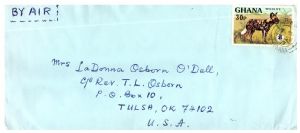 BY AIR
GHANA
30p
Mrs LaDonna Osborn O'Dell,
c/o Rev. T.L. Osborn
P.O. Box 10,
TULSA, OK 74102
U.S.A.